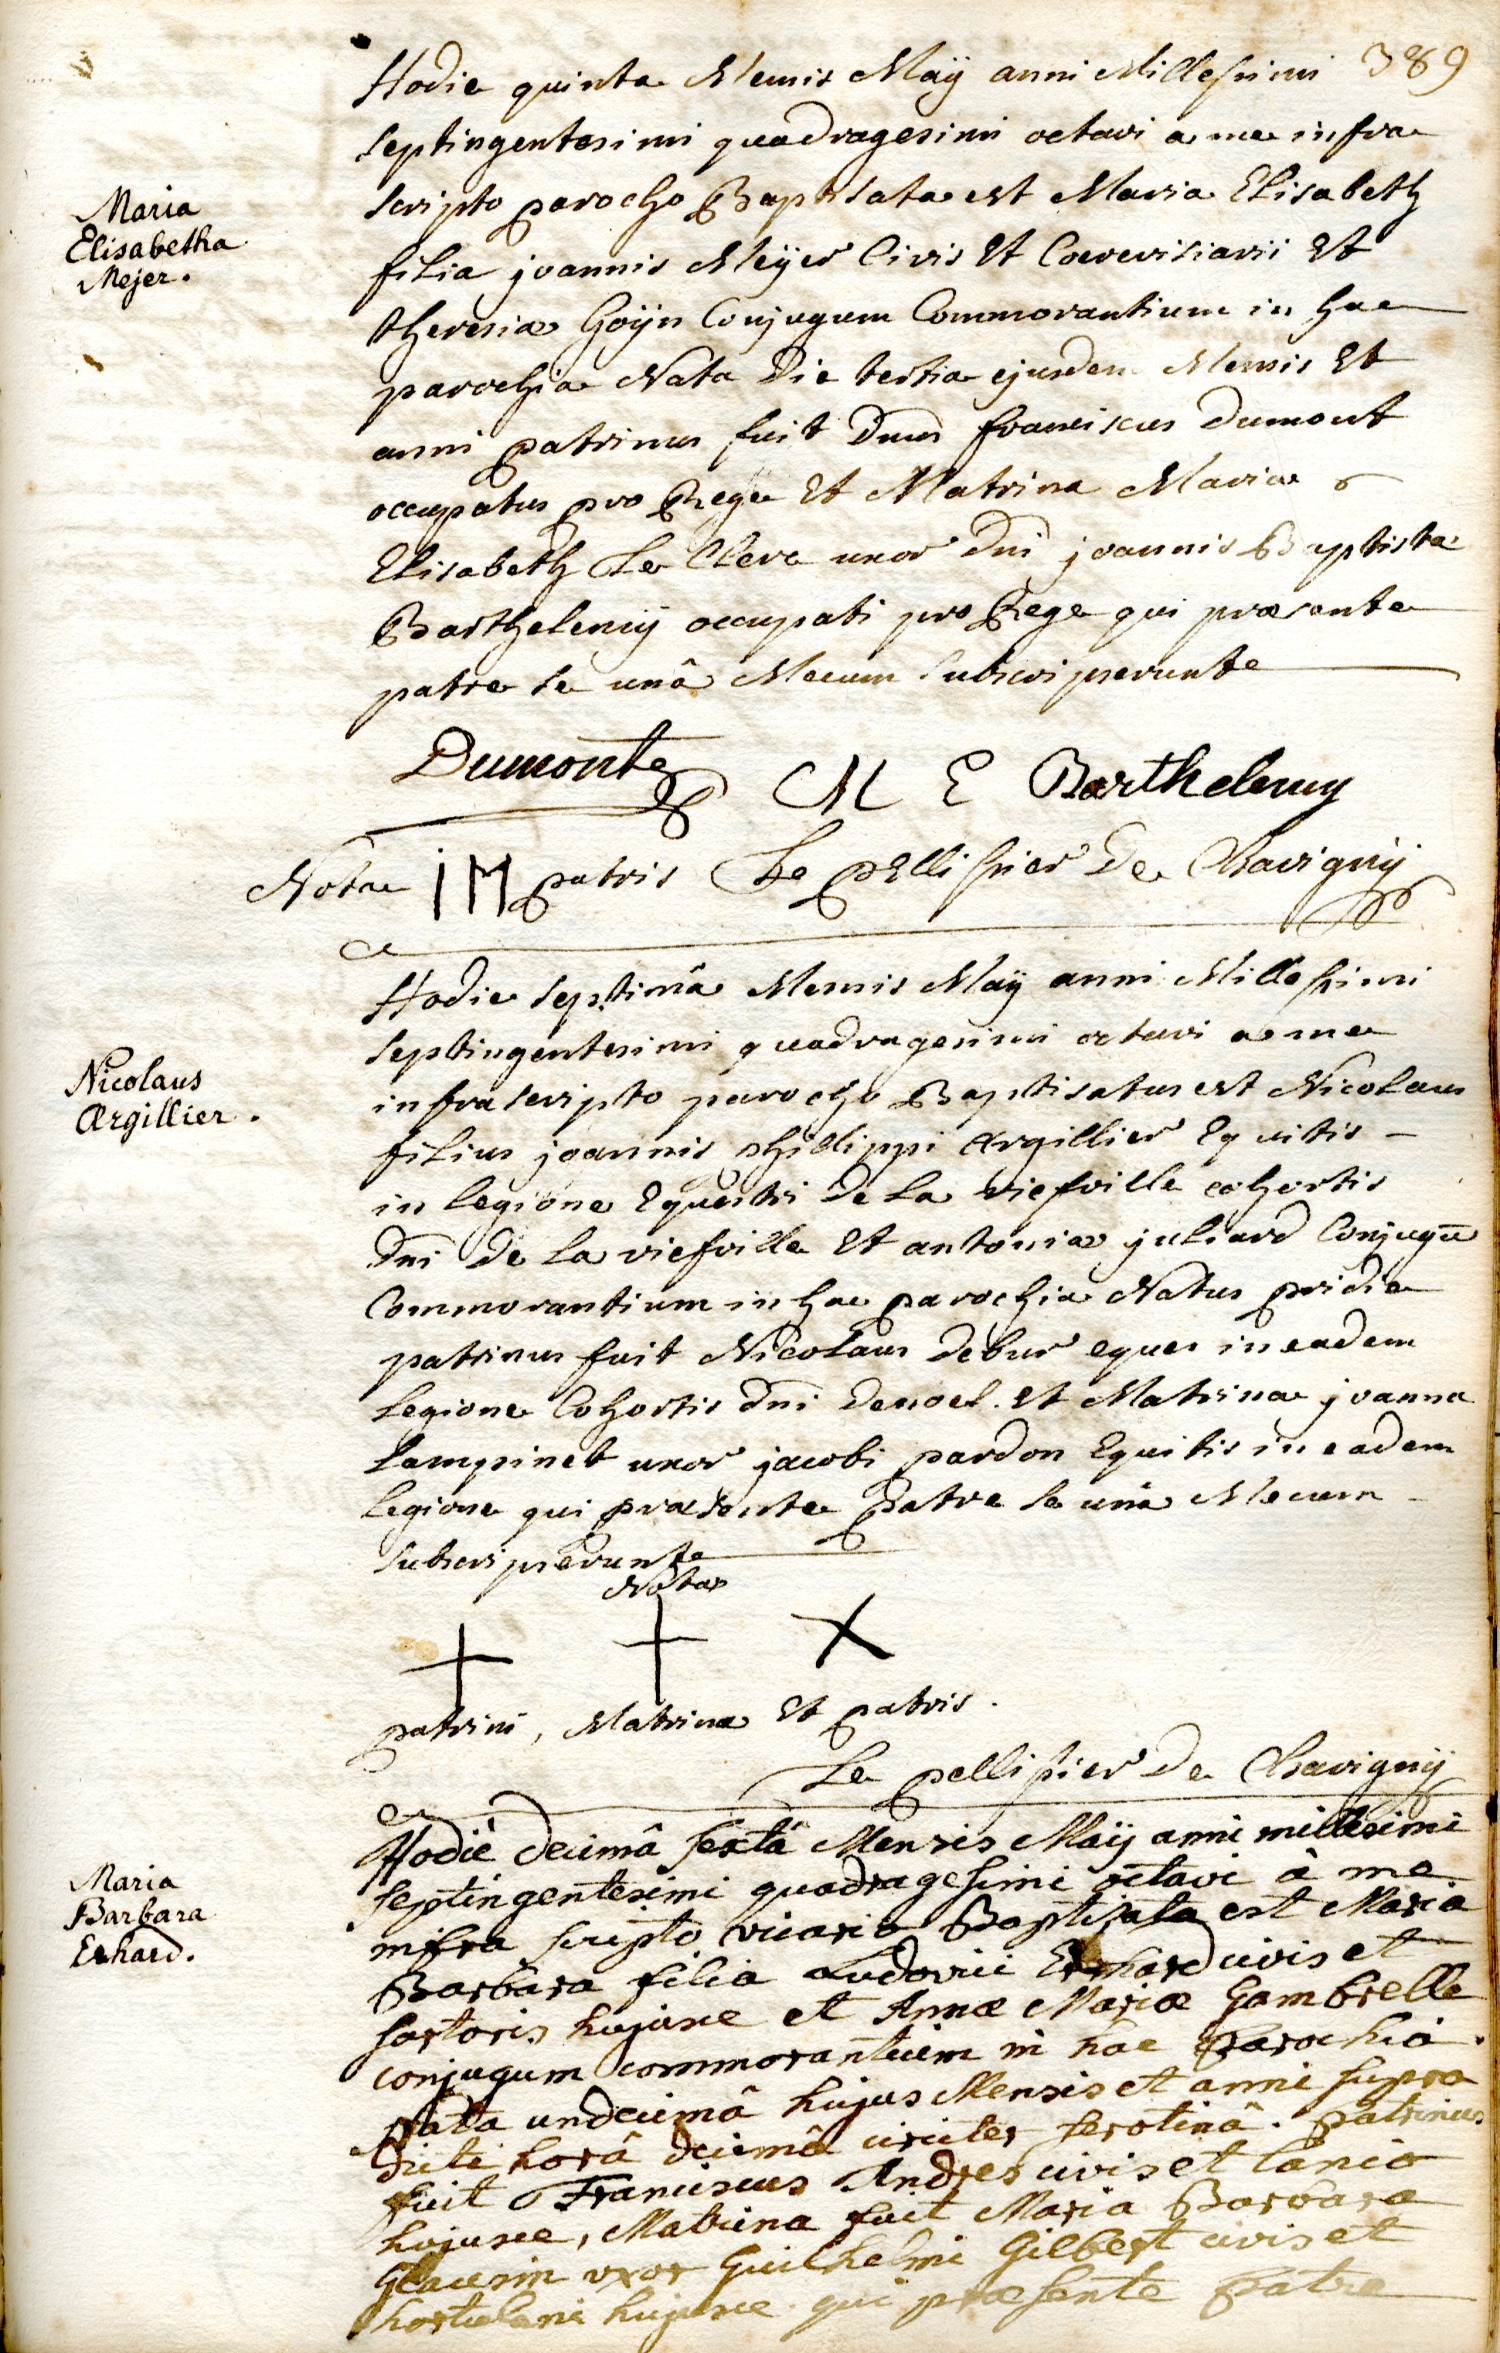 389
Hodie quinta Mensis Maÿ anni Millesimi
septingentesimi quadragesimi octavi a me infra
scripto parocho Baptisata est Maria Elisabeth
filia joannis Meÿer Civis Et Coerevisiarii Et
theresiæ Goÿn Conjugum Commorantium in hac
parochia Nata Die tertia ejusdem Mensis Et
anni patrinus fuit Dnus franciscus Dumont
occupatus pro Rege Et Matrina Maria
Elisabeth Le Clerc uxor Dni joannis Baptista
Barthelemÿ occupati pro Rege qui præsente
patre se unâ Mecum subscripserunt
Maria
Elisabetha
Mejer.
Dumont M E Barthelemy
Nota IM patris Le pellissier De Chavignÿ
Hodie septimâ Mensis Maÿ anni Millesimi
septingentesimi quadragesimi octavi a me
infrascripto parocho Baptisatus est Nicolaus
filius joannis phillippi Argillier Equitis –
in legione Equestri De la viefville cohortis
Dni De la viefville Et antoniæ juliard Conjugū
Commorantium in hac parochia Natus pridie
patrinus fuit Nicolaus Debur eques in eadem
legione Cohortis Dni Denoel. Et Matrina joanna
Lampinet uxor jacobi pardon Equitis in eadem
legione qui præsente patre se unâ Mecum
subscripserunt
Nicolaus
Argillier.
Nota
+ + X
patrini, Matrinæ Et patris.
Le pellissier De Chavignÿ
Hodiè decimâ sextâ Mensis Maÿ anni millesimi
septingentesimi quadragesimi octavi â me
infra scripto vicario Baptisata est Maria
Barbara filia Ludovici Erhard civis et
sartoris hujusce et Annæ Mariæ Gambrelle
conjugum commorantium in hac Parochia.
Nata undecimâ hujus Mensis et anni supra
dicti horâ decimâ circiter serotinâ. Patrinus
fuit Franciscus Andres civis et lanio
hujusce, Matrina fuit Maria Barbara
Glaeesin uxor Guilhelmi Gilbert civis et
hortulani hujusce qui præsente Patre
Maria
Barbara
Erhard.